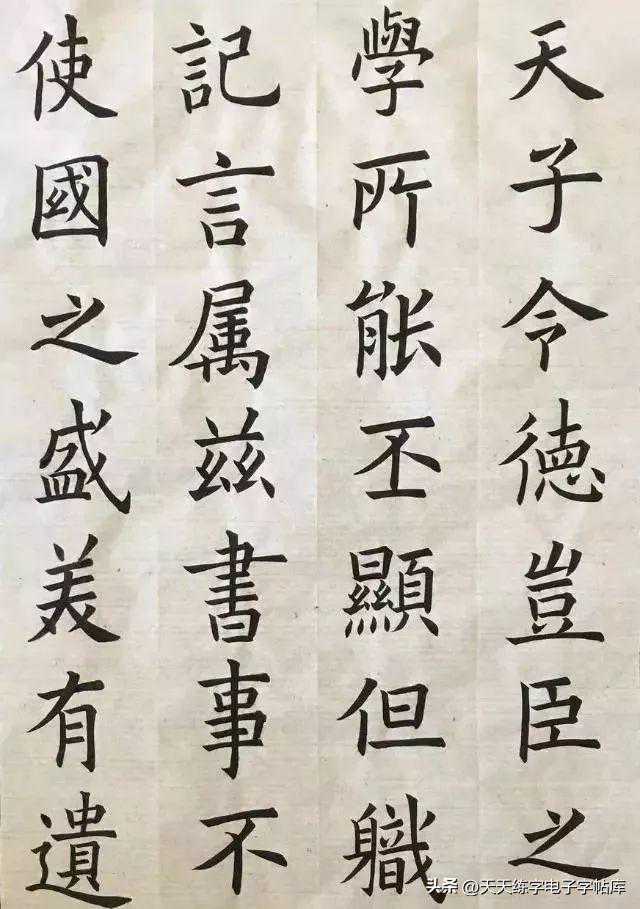 天子令徳豈臣之
學所能丕顯但職
記言属兹書事不
使國之盛美有遺
头条 @天天练字电子字帖库